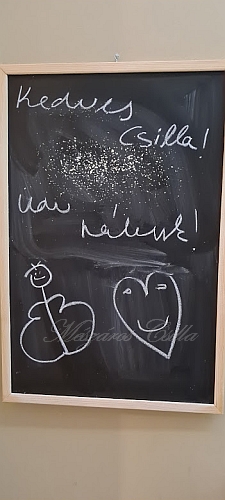 Kedves
Csilla!
Üdv
nálunk!
Mészáros Csilla